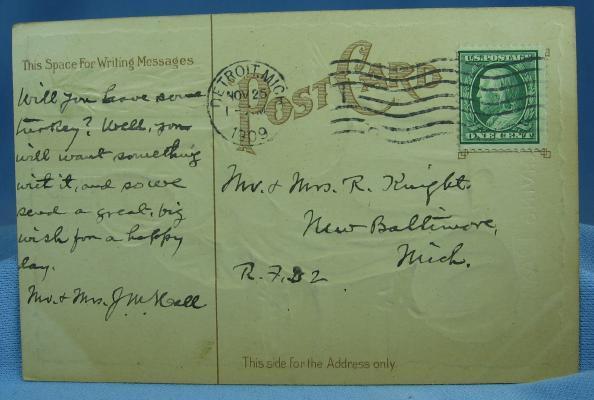 This Space For Writing Messages
Will you have some
turkey? Well, you
will want something
wit it, and so we
send a great, big
wish for a happy
day.
Mr. & Mrs. J. M. Hall
POST CARD
DETROIT, MICH.
NOV 25
1909
U.S. POSTAGE
ONE CENT
Mr. & Mrs. R. Knight.
New Baltimore,
Mich.
R.F.D 2
This side for the Address only